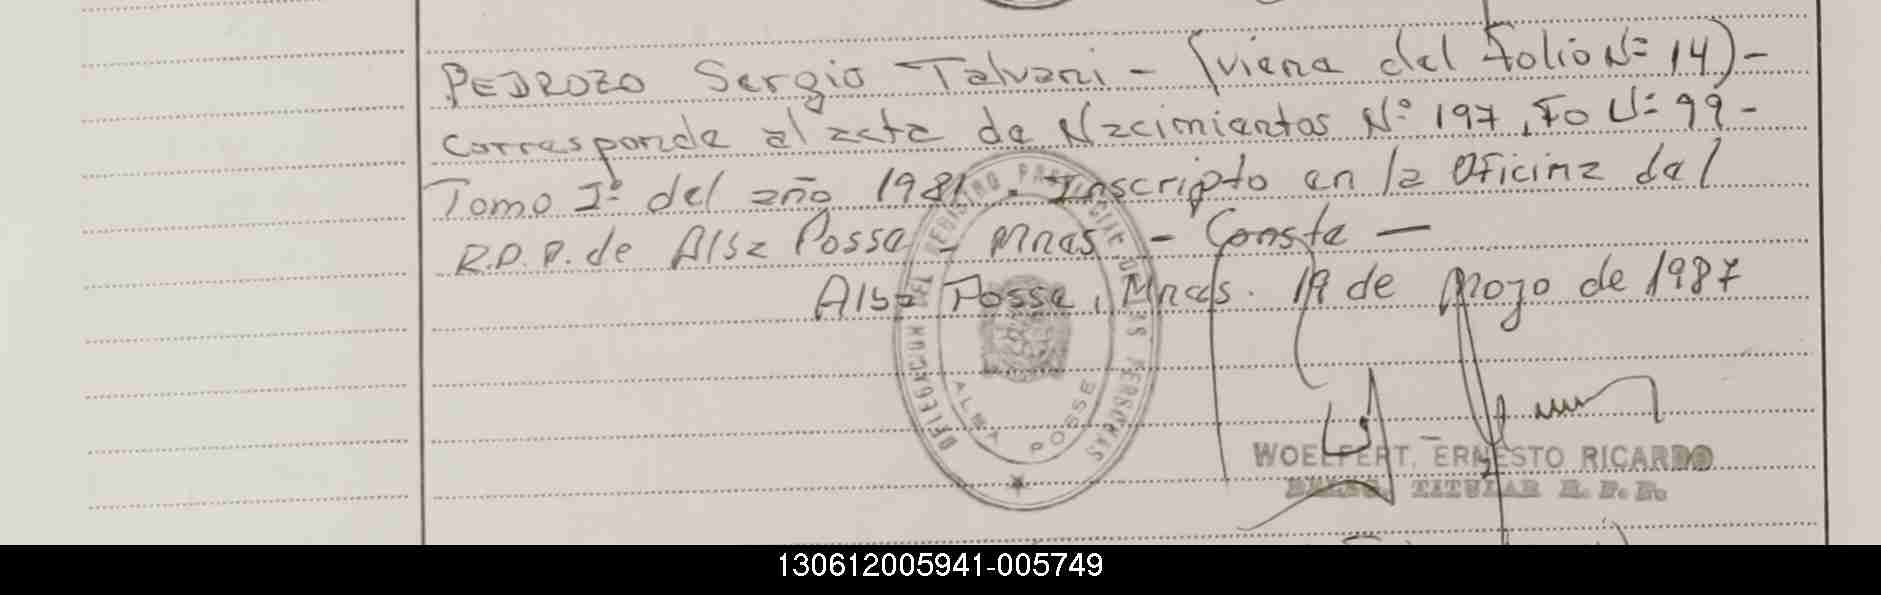 PEDROZO Sergio Talvani - (viene del Folio Nº 14) -
corresponde al acta de Nacimientos Nº 197, Fo Nº 99 -
Tomo Iº del año 1981. Inscripto en la Oficina del
R.P.P. de Alba Posse - Mnes - Conste -
Alba Posse, Mnes. 19 de Mayo de 1987
DELEGACION DEL REGISTRO PROVINCIAL DE LAS PERSONAS
ALBA POSSE
WOELFERT, ERNESTO RICARDO
DELEG. TITULAR R. P. P.
130612005941-005749